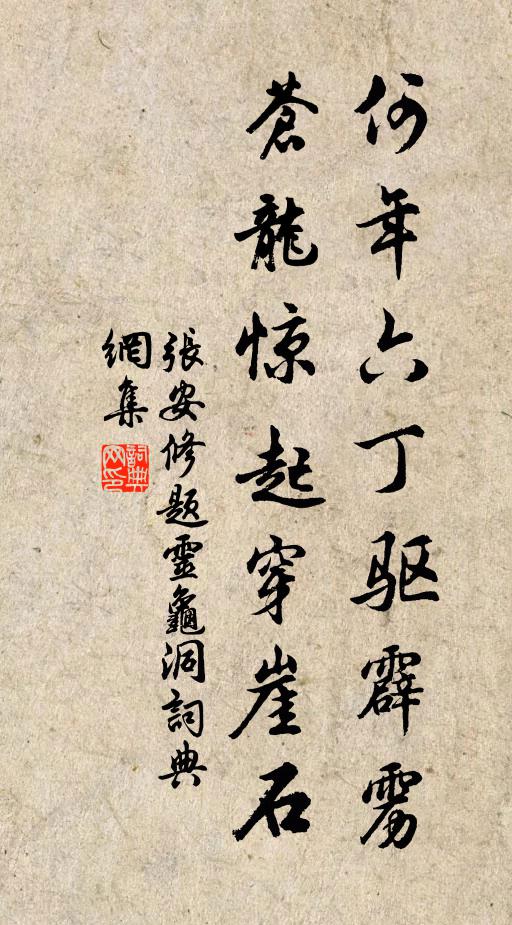 何年六丁驱霹雳
蒼龍惊起穿崖石
張安修题靈龜洞詞典
網集
詞典网印